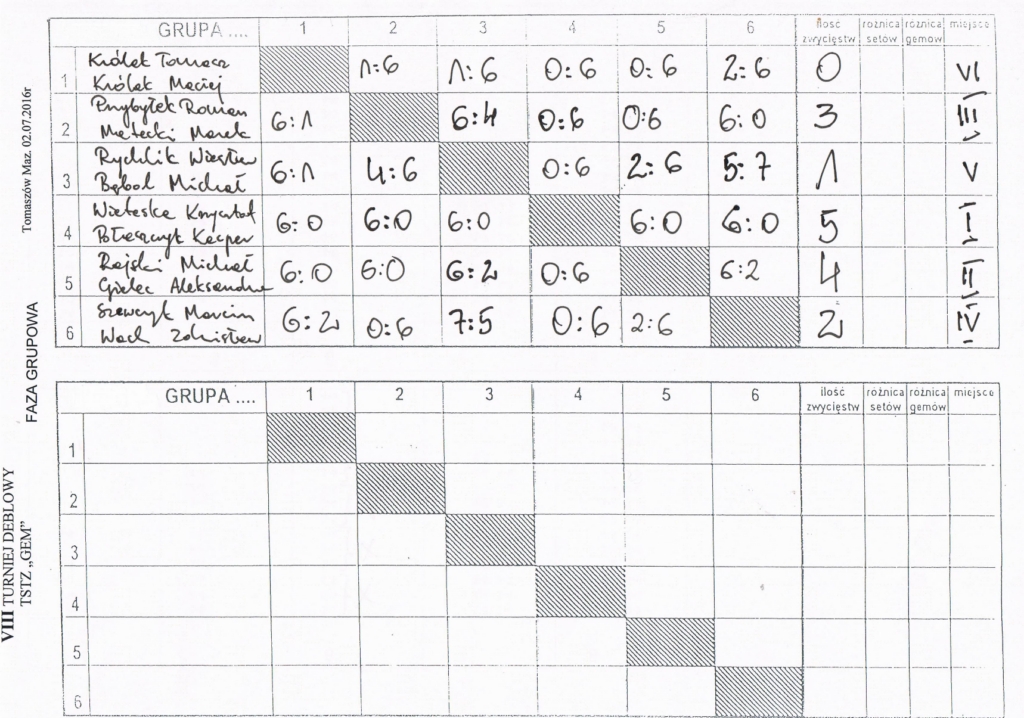 VIII TURNIEJ DEBLOWY
TSTZ „GEM”
FAZA GRUPOWA
Tomaszów Maz. 02.07.2016r
GRUPA .... 1 2 3 4 5 6 ilość zwycięstw rożnica setów rożnica gemów miejsce
1 Królak Tomasz
Królak Maciej 1:6 1:6 0:6 0:6 2:6 0 VI
2 Przybyłek Roman
Matecki Marek 6:1 6:4 0:6 0:6 6:0 3 III
3 Rychlik Wiesław
Bąbol Michał 6:1 4:6 0:6 2:6 5:7 1 V
4 Wieteska Krzysztof
Kacper 6:0 6:0 6:0 6:0 6:0 5 I
5 Rajski Michał
Aleksander 6:0 6:0 6:2 0:6 6:2 4 II
6 Szewczyk Marcin
Wach Zdzisław 6:2 0:6 7:5 0:6 2:6 2 IV
GRUPA .... 1 2 3 4 5 6 ilość zwycięstw rożnica setów rożnica gemów miejsce
1
2
3
4
5
6